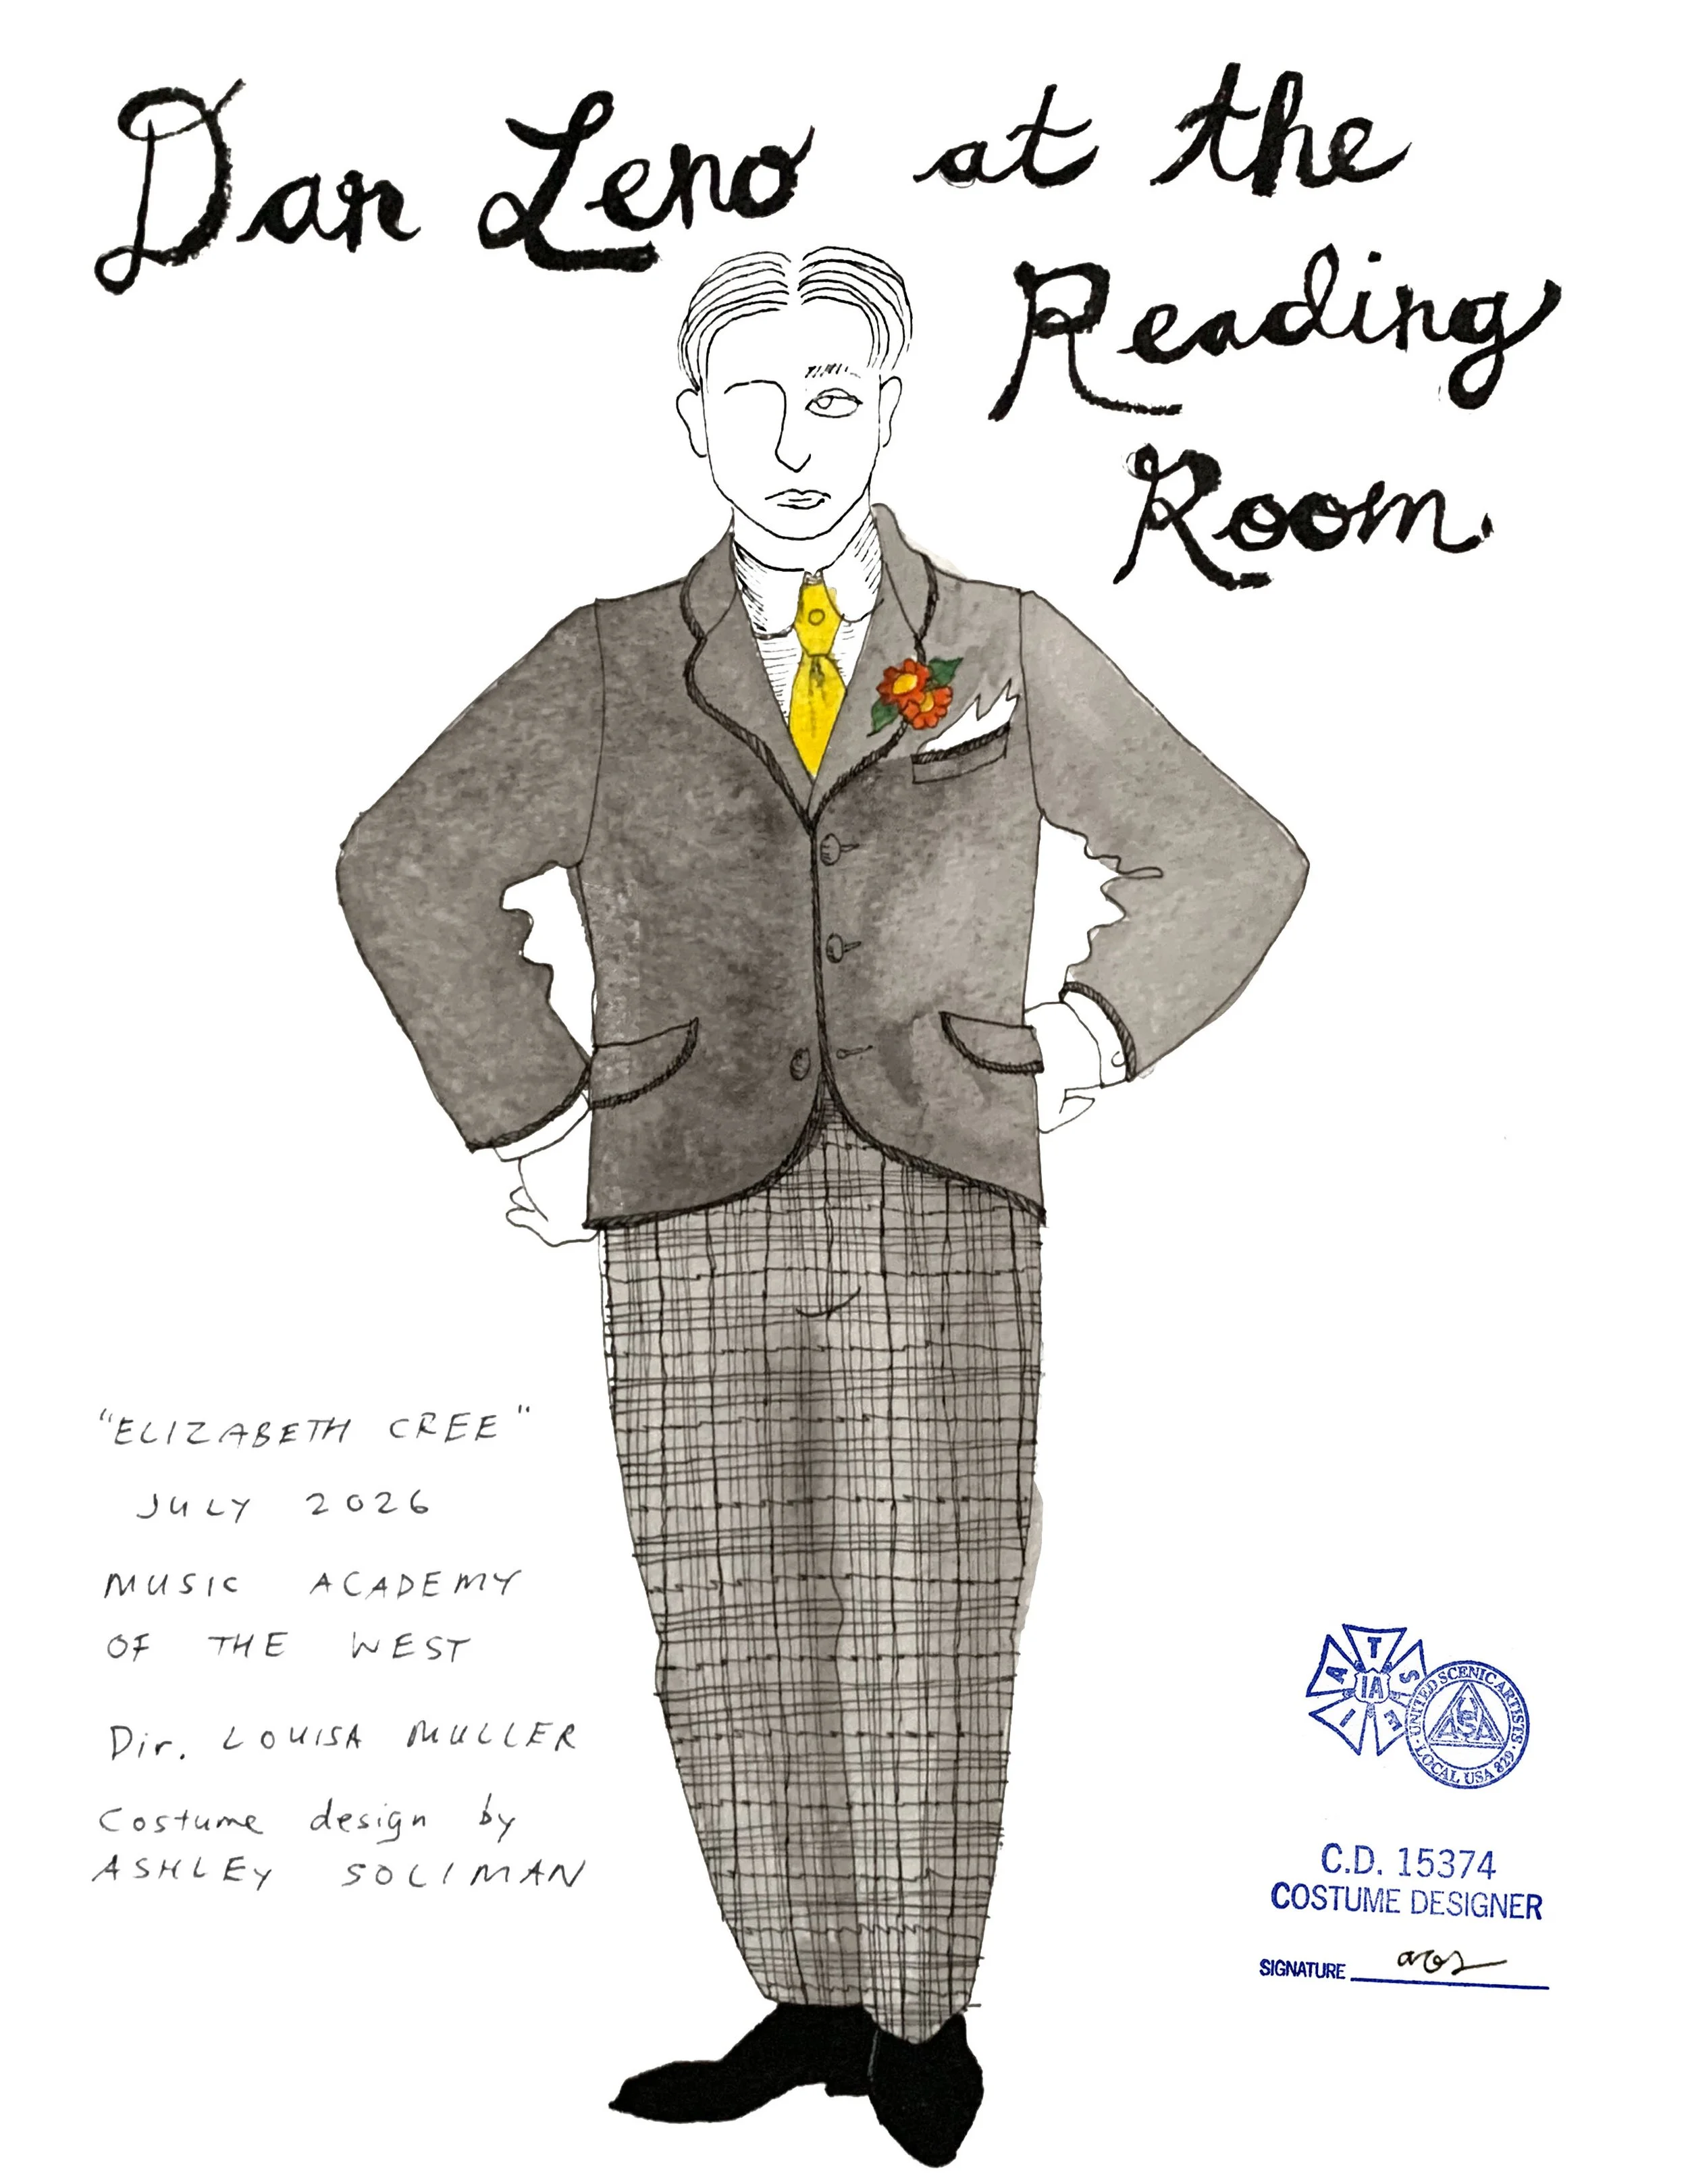 Dan Leno at the
Reading
Room
"ELIZABETH CREE"
JULY 2026
MUSIC ACADEMY
OF THE WEST
Dir. LOUISA MULLER
Costume design by
ASHLEY SOLIMAN
IATSE
IA
UNITED SCENIC ARTISTS
LOCAL USA 829
USA
C.D. 15374
COSTUME DESIGNER
SIGNATURE